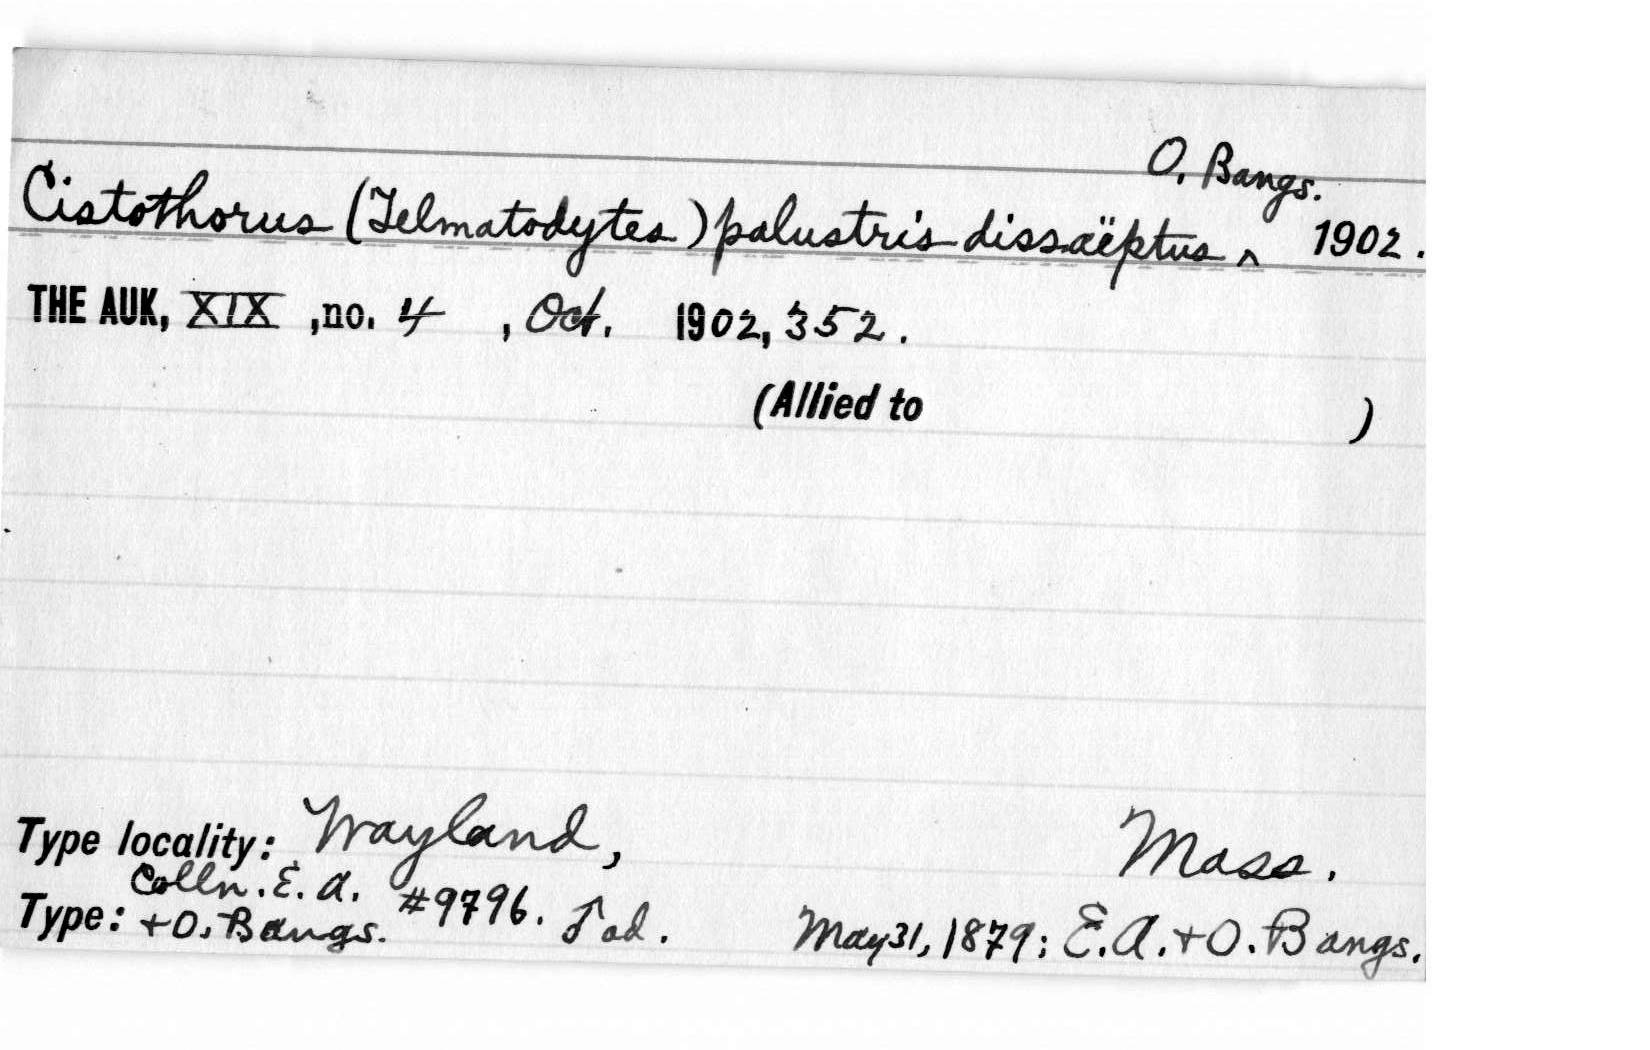 O. Bangs.
Cistothorus (Telmatodytes) palustris dissaëptus ^ 1902.
THE AUK, XIX, no. 4, Oct. 1902, 352.
(Allied to )
Type locality: Wayland, Mass.
Colln. E. A.
Type: + O. Bangs. #9796. ♂ ad. May 31, 1879; E. A. + O. Bangs.